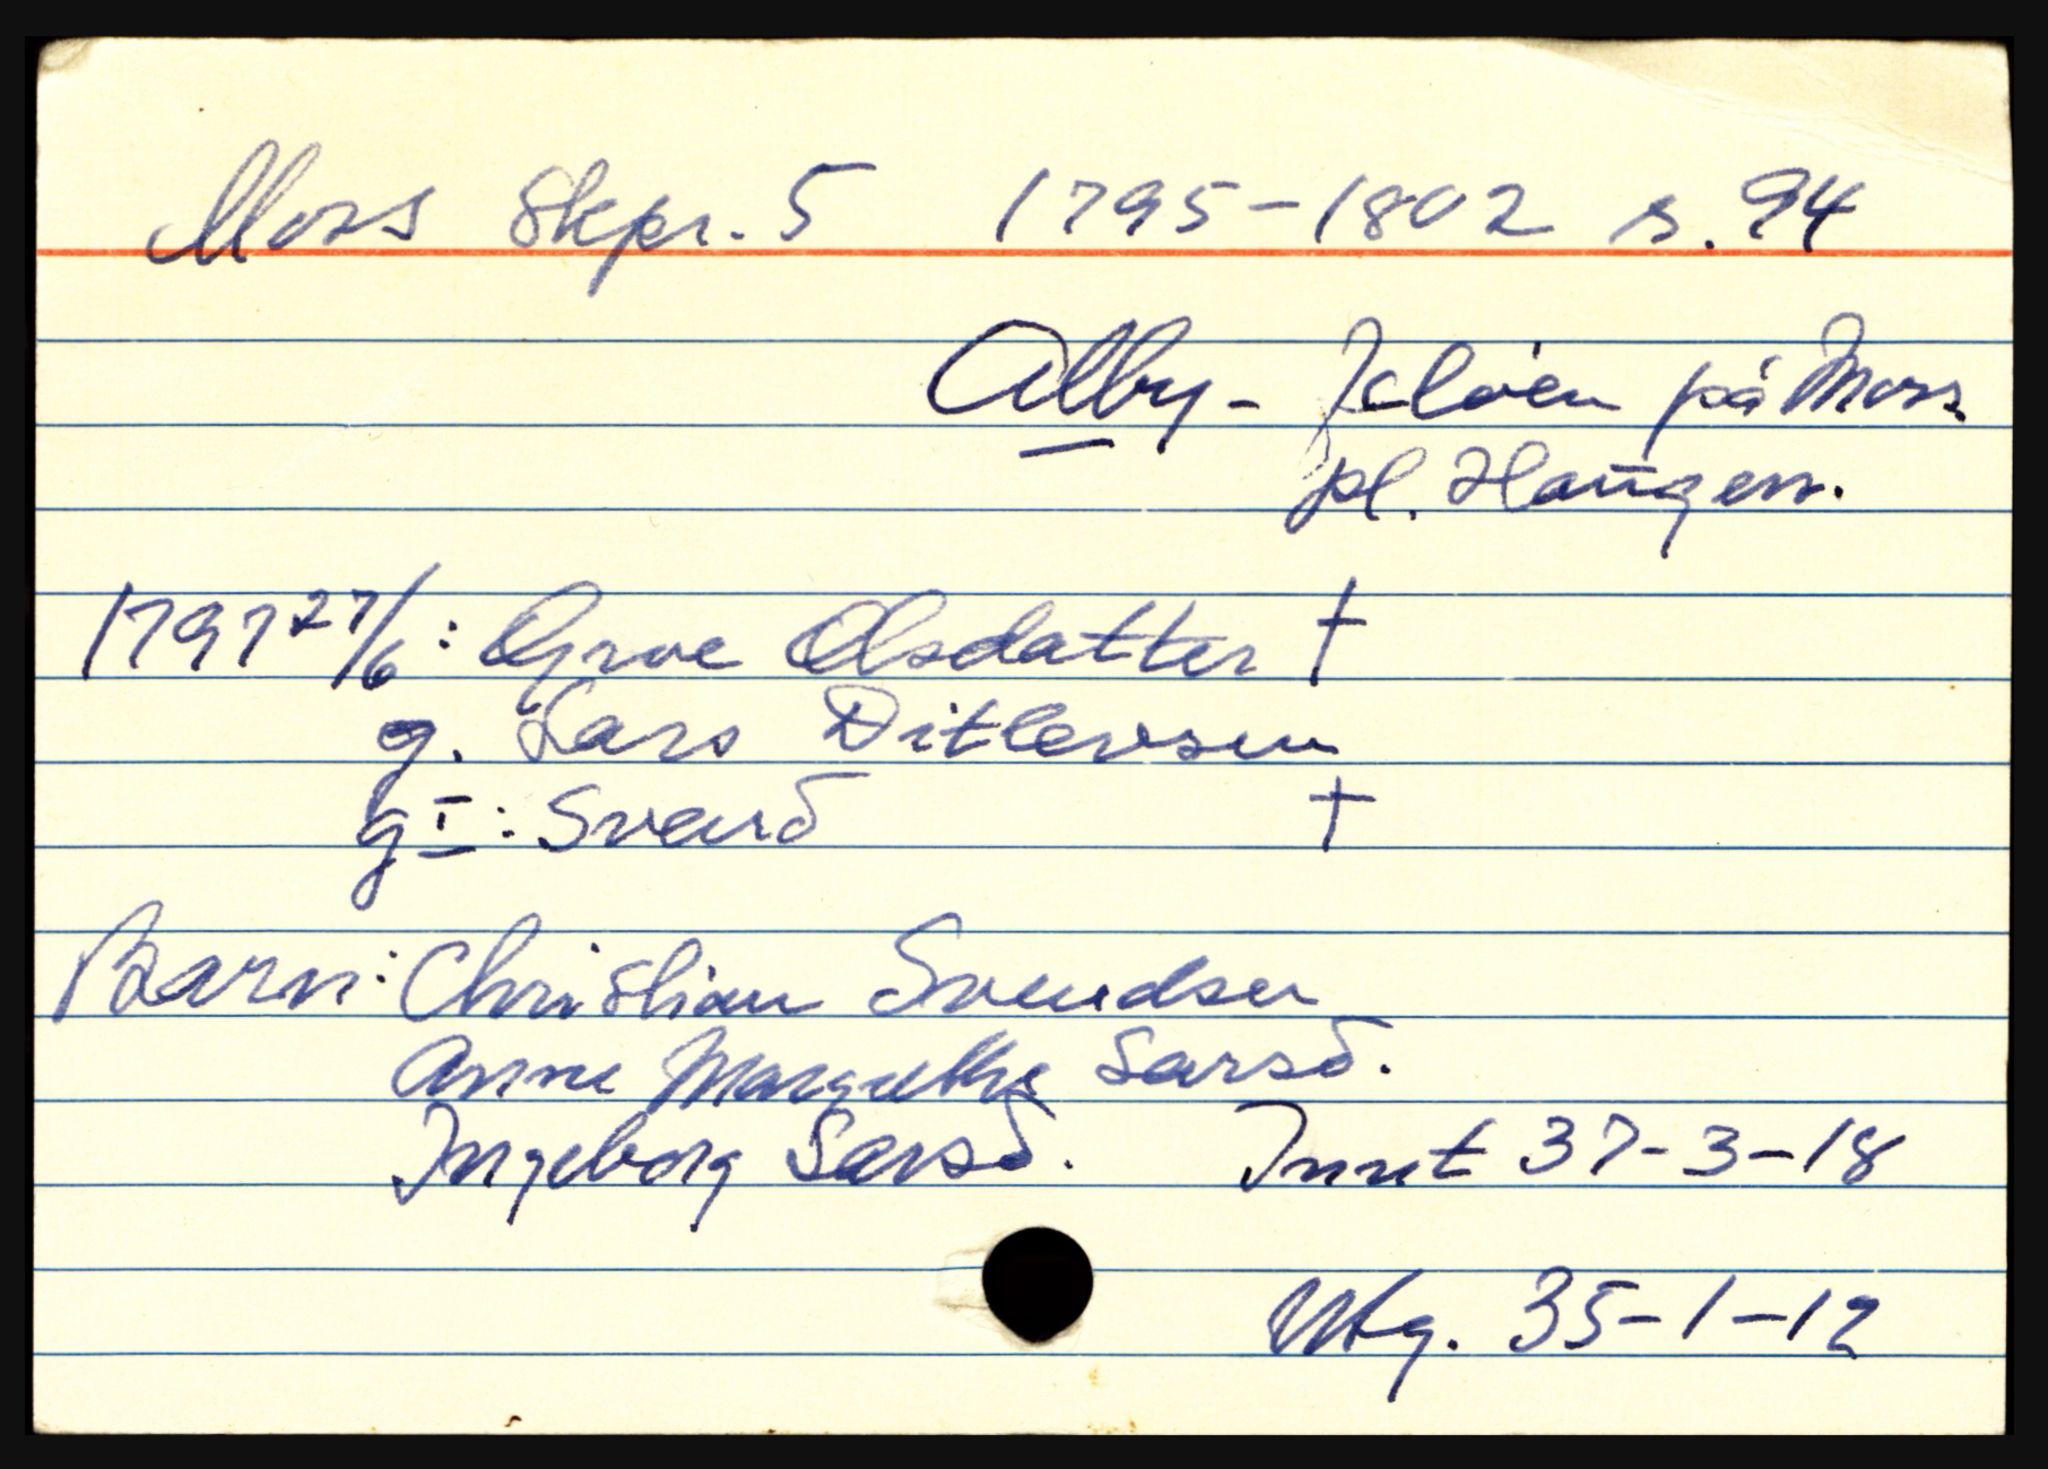 Moss Skpr. 5 1795-1802 s. 94
Alby - Jeløen på Moss
pl. Haugen.
1797 27/6: Groe Olsdatter †
g. Lars Ditlevsen
g I: Svend †
Barn: Christian Svendsen
Anne Margrethe Larsd.
Ingeborg Larsd. Innt 37-3-18
Utg. 35-1-12